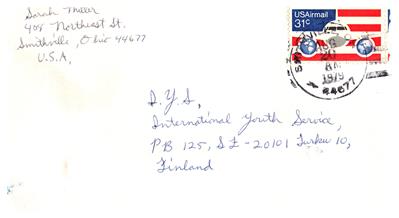 Sarah Miller
408 Northeast St.
Smithville, Ohio 44677
U.S.A.
USAirmail
31c
20
1979
44677
I.Y.S,
International Youth Service,
PB 125, SF-20101 Turku 10,
Finland